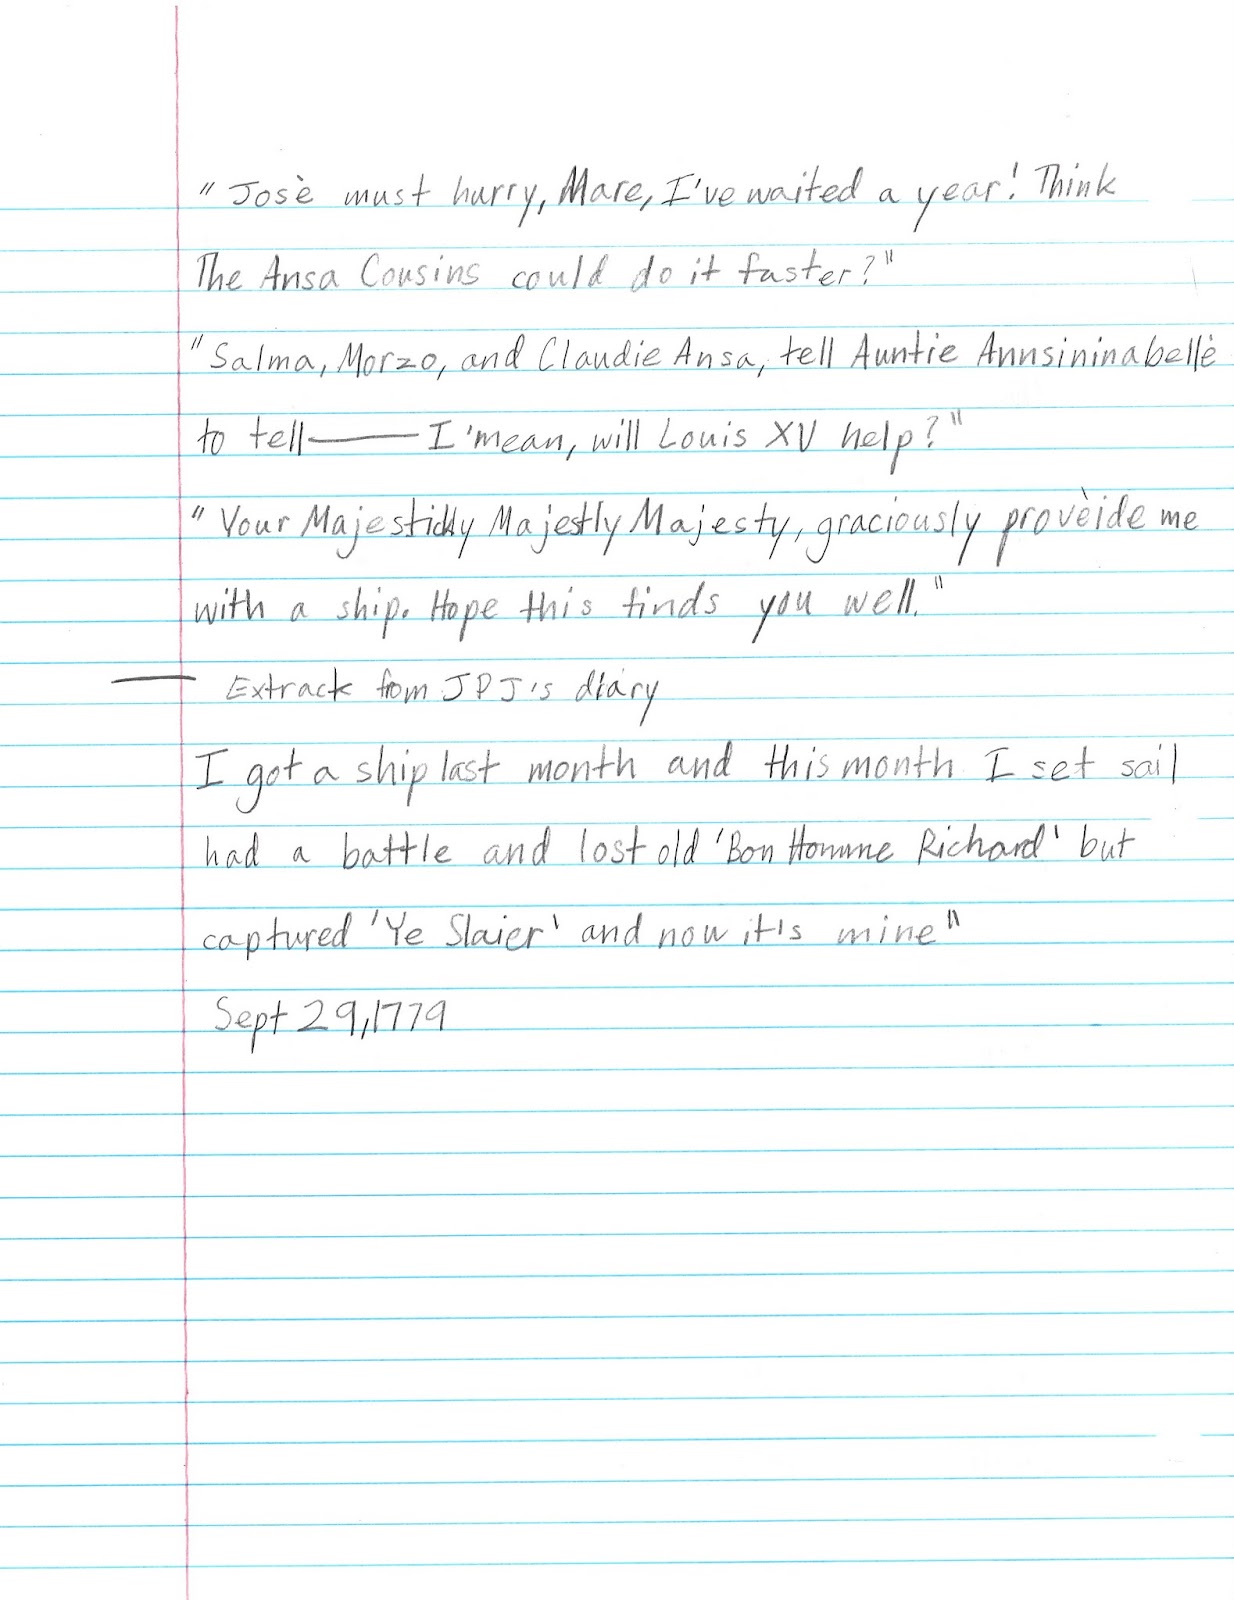 "Josè must hurry, Mare, I've waited a year! Think
The Ansa Cousins could do it faster?"
"Salma, Morzo, and Claudie Ansa, tell Auntie Annsininabellè
to tell—— I'mean, will Louis XV help?"
"Your Majestickly Majestly Majesty, graciously provèide me
with a ship. Hope this finds you well."
— Extrack from JPJ's diary
I got a ship last month and this month I set sail
had a battle and lost old 'Bon Homme Richard' but
captured 'Ye Slaier' and now it's mine"
Sept 29,1779